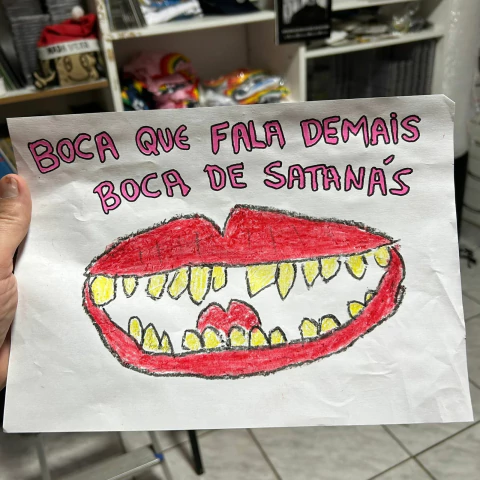 BOCA QUE FALA DEMAIS
BOCA DE SATANÁS